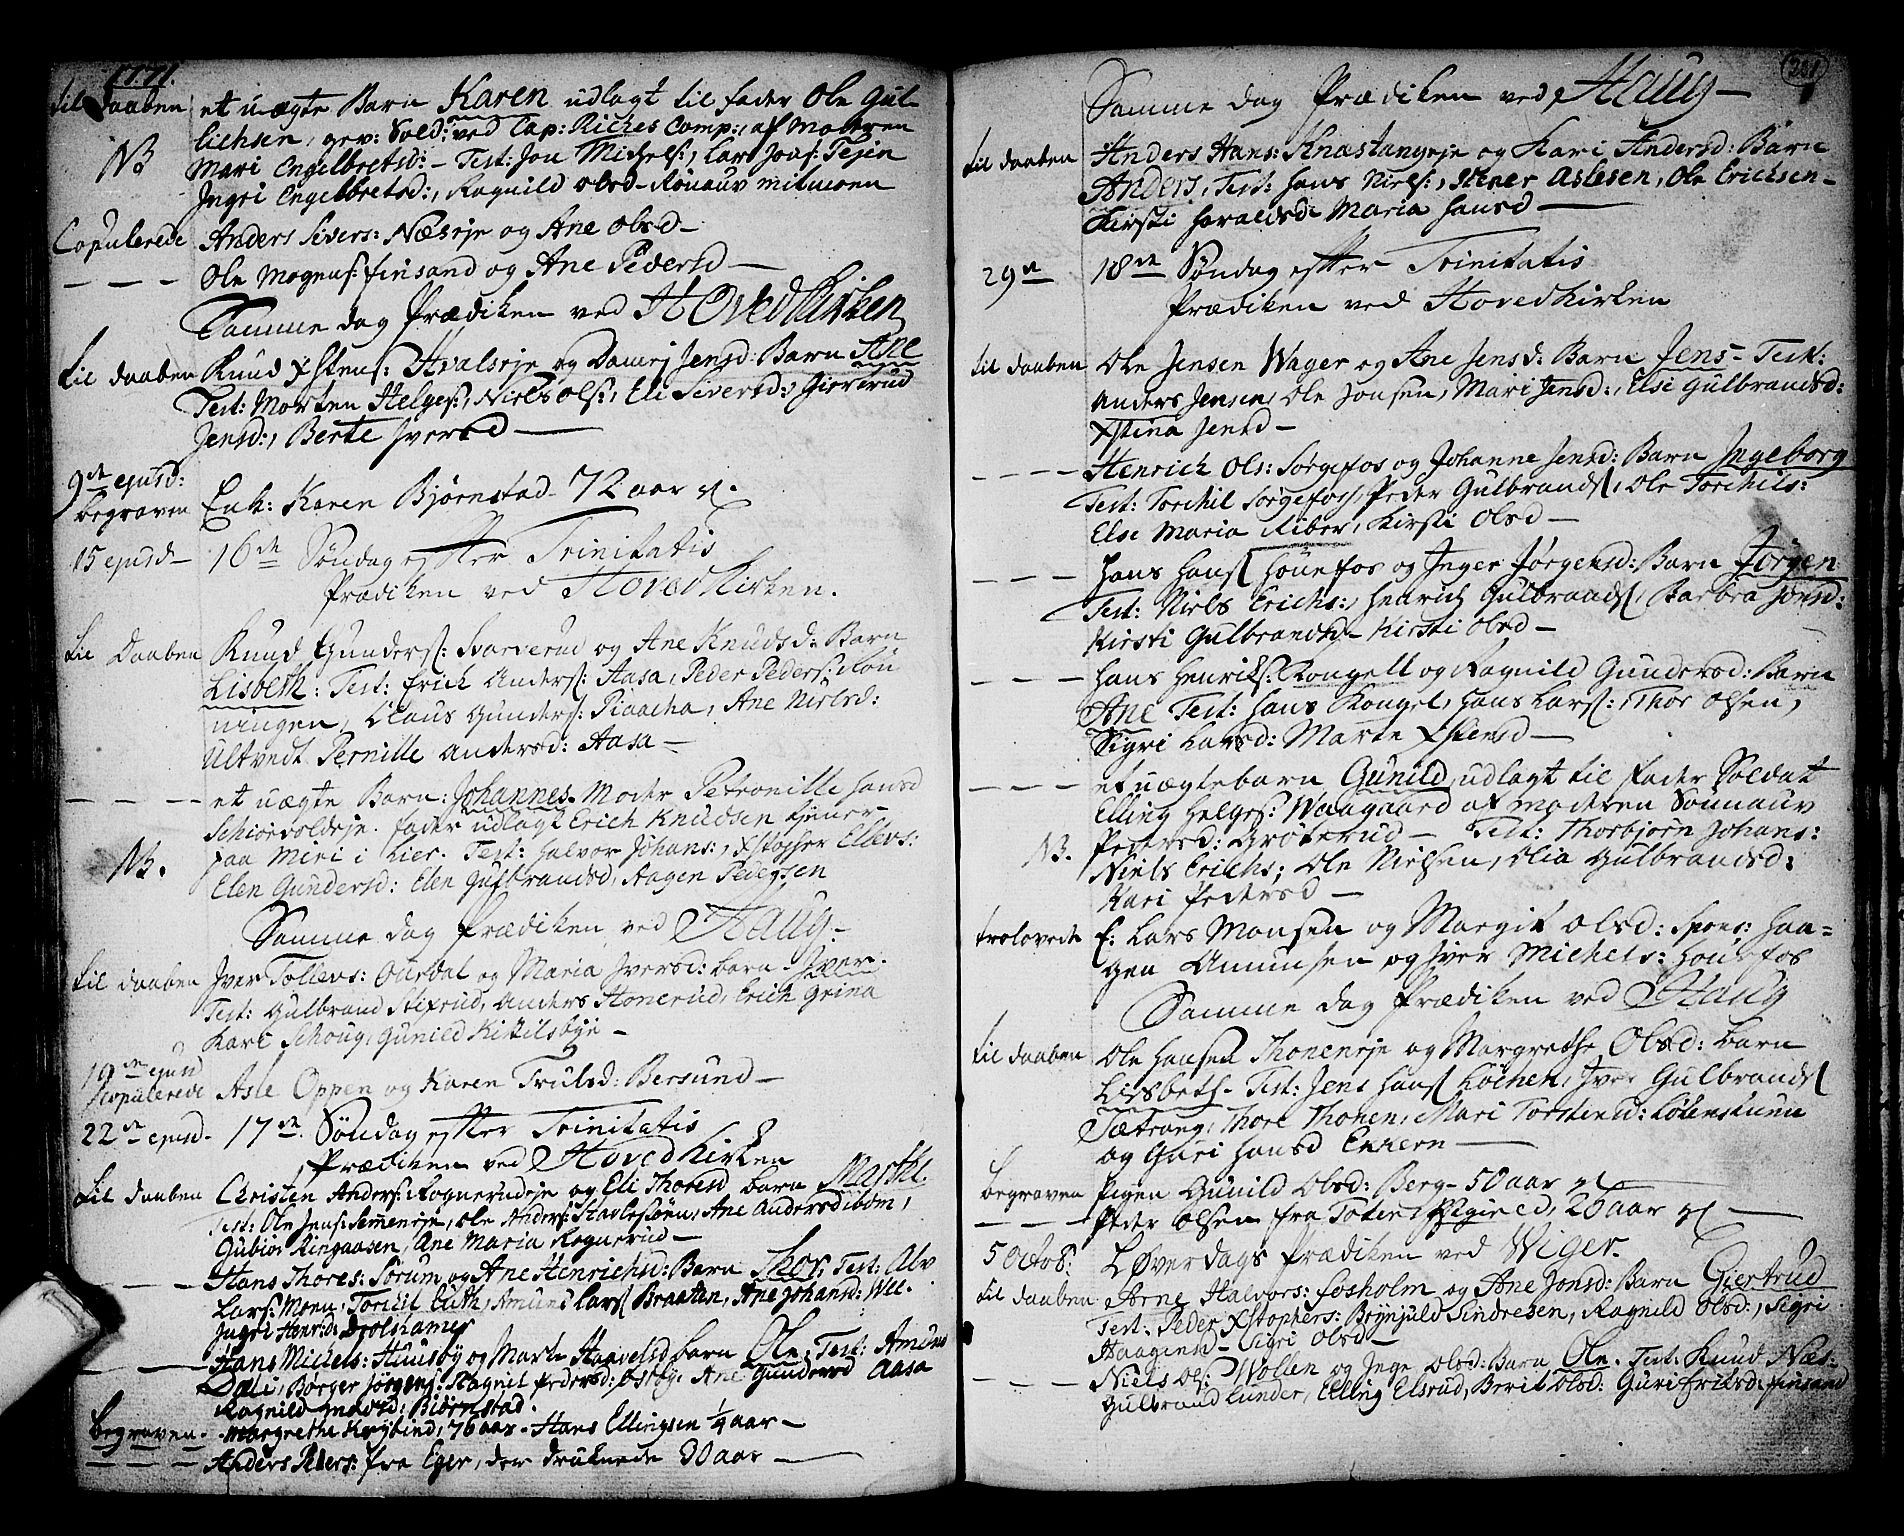 1771.
til daaben et uægte Barn Karen udlagt til fader Ole Gul-
lichsen, gev: Sold: ved Cap: Riches Comp:, af Moderen
NB Mari Engelbretsd: - Test: Jon Michels:, Lars Jons: Tejen
Ingri Engelbretsd:, Ragnild Olsd - Rønauv mitmoen
Copulerede Anders Sivers: Næseje og Ane Olsd -
- - - Ole Mognus: finsand og Ane Pedersd -
Samme dag Prædiken ved Hovedkirken
til daaben Knud Xstens: Hvalseje og Dorrej Jensd: Barn Ane
Test: Morten Helges:, Niels Ols:, Eli Siversd:, Giertrud
Jensd:, Berte Iversd -
9de ejusd:
begraven Enk: Karen Bjørnstad - 72 aar
15 ejusd - 16de Søndag efter Trinitatis
Prædiken ved Hovedkirken.
til Daaben Knud Gunders: Svarverud og Ane Knudsd: Barn
Lisbeth: Test: Erich Anders: Aasa, Peder Peders: Løn
ningen, Claus Gunders: Piaacha, Ane Nielsd:
Ultvedt Pernille Andersd: Aasa -
- - - et uægte Barn: Johannes. Moder Petronille Hansd
Schiørvoldeje. fader udlagt Erich Knudsen tjener
NB. paa Miri i Lier. Test: Halvor Johans:, Xstopher Ellevs:
Elen Gundersd: Elen Gulbrandsd, Aagen Pedersen
Samme dag Prædiken ved Haug -
til daaben Iver Tollevs: Ourdal og Maria Iversd: barn Iver.
Test: Gulbrand Stixrud, Anders Honerud, Erich Grina
Kari Schoug, Gunild Kittilsbye -
19de ejusd
Copulerede Asle Oppen og Karen Trulsd: Bersund -
22de ejusd - 17de Søndag efter Trinitatis
Prædiken ved Hovedkirken
til daaben Christen Anders: Rognerudeje og Eli Thoresd barn Marthe.
Test: Ole Jens: Semmeneje, Ole Anders: Ane Andersd
Gubiør Ringaasen, Ane Maria Rognerud -
- - - Hans Thores: Sørum og Ane Henrichsd: Barn Thor, Test: Alv
Lars: Moen, Torchil Amund Lars Braaten, Ane Johansd: Wee.
Ingri Henrsd:
- - - Hans Michels: Huusby og Marte Haavelsd barn Ole, Test: Amund
Dæli, Børger Jørgens: Magnil Pedersd: Østby. Ane Gundersd Aasa
Ragnild Bjørnstad.
begraven - Margrethe 76 aar - Hans Ellingsen 1/4 aar -
- - - Anders Peders: fra Eger, der druknede 30 aar -
201
Samme dag Prædiken ved Haug -
til daaben Anders Hans: Knæstangeje og Kari Andersd: Barn
Anders, Test: Hans Niels:, Stener Aslesen, Ole Erichsen -
Kirsti Haraldsd: Maria Hansd -
29de 18de Søndag efter Trinitatis
Prædiken ved Hovedkirken
til daaben Ole Jensen Wager og Ane Jensd: Barn Jens - Test:
Anders Jensen, Ole Jonsen, Mari Jensd:, Elsi Gulbrandsd:
Xstina Jensd -
- - - Henrich Ols: Sørgefos og Johanne Jensd: Barn Ingeborg
Test: Torchil Sørgefos, Peder Gulbrands, Ole Torchils:
Else Maria Riber, Kirsti Olsd -
- - - Hans Hans Hønefos og Inger Jørgensd: Barn Jørgen
Test: Niels Erichs:, Henrich Gulbrands, Barbra Jonsd:
Kirsti Gulbrandsd - Kirsti Olsd -
- - - Hans Henriks: Kongell og Ragnild Gundersd: Barn
Ane Test: Hans Kongel, Hans Lars:, Thor Olsen,
Sigri Larsd: Marte Xstensd -
- - - et uægte barn Gunild udlagt til Fader Soldat
Elling Helges: Waagaard af moderen Sønnauv
NB. Pedersd: Grøterud - Test: Thorbjørn Johans:
Niels Erichs; Ole Nielsen, Olia Gulbrandsd:
Kari Pedersd -
trolovede E: Lars Monsen og Margit Olsd: Spons: Haa=
gen Amunsen og Iver Michels: Hønefos
Samme dag Prædiken ved Haug
til daaben Ole Hansen Thoneneje og Margrethe Olsd: barn
Lisbeth - Test: Jens Hans Løchen, Iver Gulbrands
Sætrang, Thore Thonen, Mari Torstensd: Løkenstuen
og Guri Hansd Ekkern -
begraven Pigen Gunild Olsd: Berg - 50 aar
- - - Peder Olsen fra Toten, 26 aar
5 Octob: Løverdags Prædiken ved Wiger.
til daaben Arne Halvors: fosholm og Ane Jonsd: Barn Giertrud
Test: Peder Xstophers: Brynjuld Sindresen, Ragnild Olsd:, Sigri
Haagensd - Sigri Olsd -
- - - Niels Ols: Wollen og Inge Olsd: Barn Ole. Test: Knud Næs:
Gulbrand Lunder, Elling Elsrud, Berit Olsd: Guri Eriksd: finsand